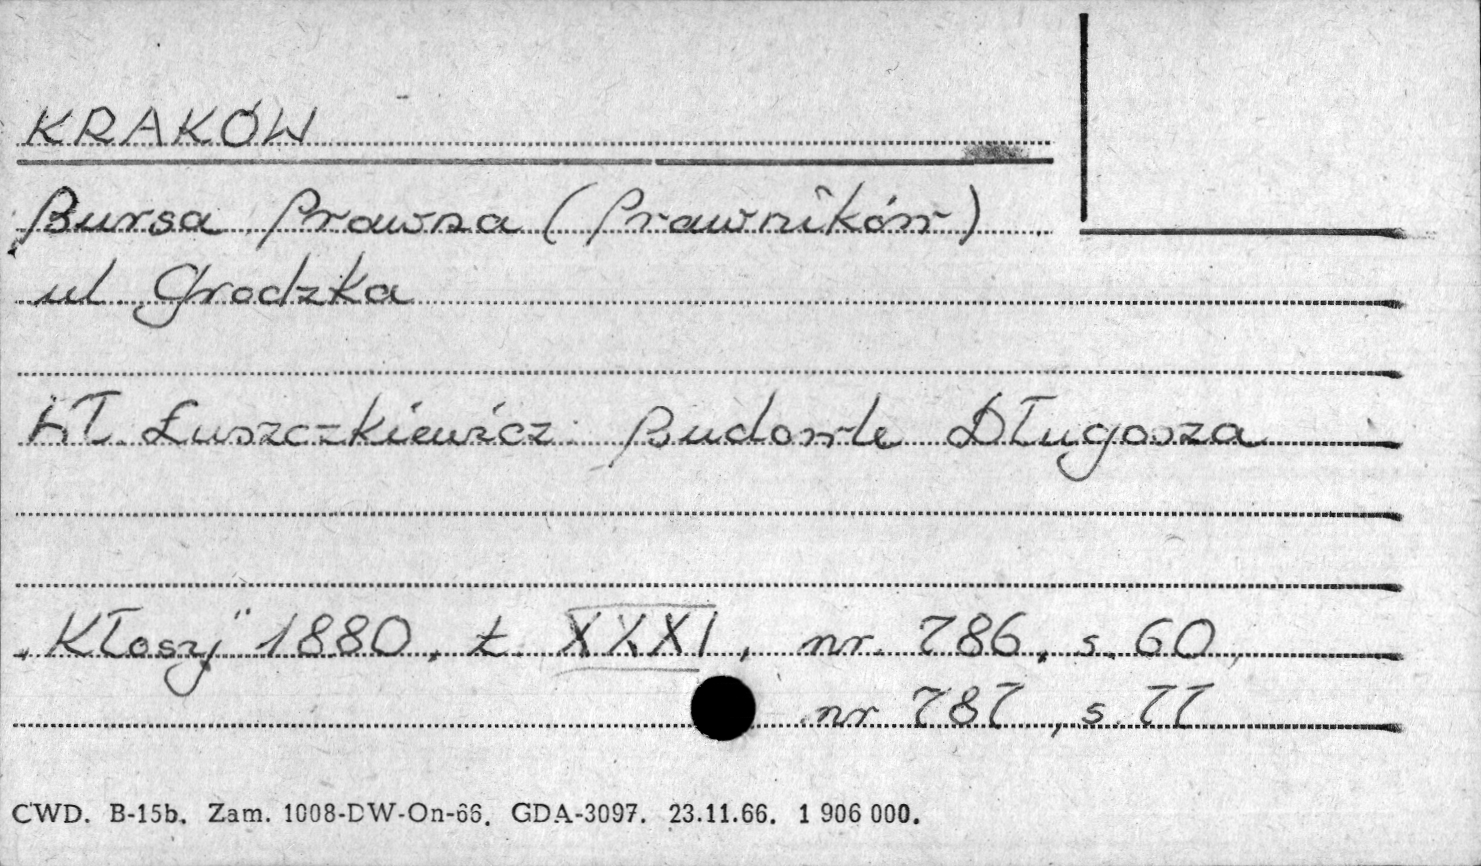 KRAKÓW
Bursa Prawna (Prawników)
ul. Grodzka
Wł. Łuszczkiewicz: Budowle Długosza
„Kłosy" 1880, t. XXXI, nr. 786, s. 60,
nr 787, s. 77
CWD. B-15b. Zam. 1008-DW-On-66. GDA-3097. 23.11.66. 1 906 000.